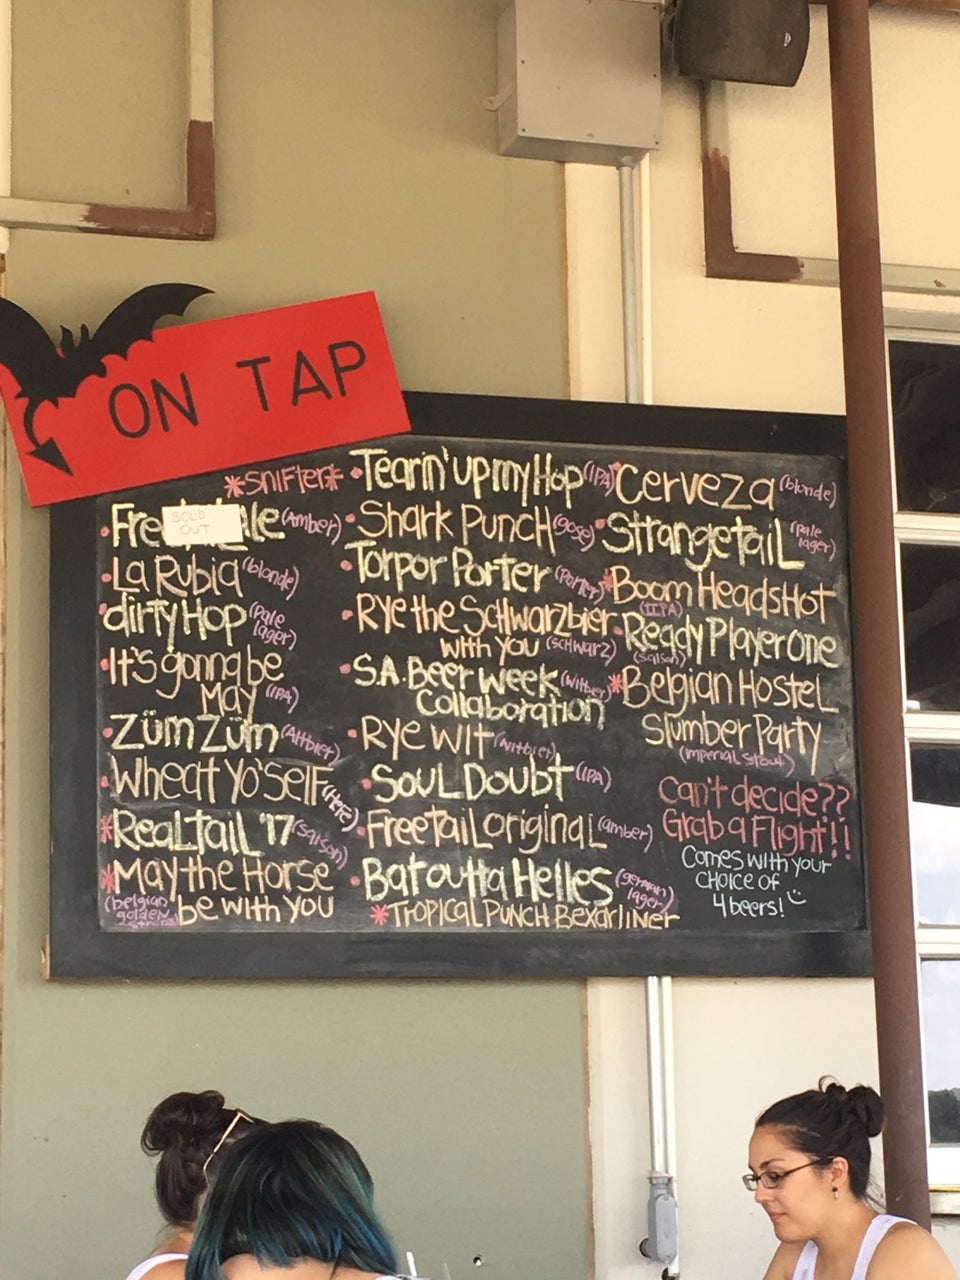 ON TAP
*SNIFTER*
SOLD
OUT
(Amber)
La Rubia (blonde)
dirty Hop (Pale
lager)
It's gonna be
May (IPA)
Züm Züm (Altbier)
Wheat Yo'Self (Hefe)
*Realtail '17 (Saison)
*May the Horse
be with you
(belgian
golden
Tearin' up my Hop (IPA)
Shark Punch (gose)
Torpor Porter (Porter)
Rye the Schwarzbier
with you (Schwarz)
S.A. Beer Week (Witbier)
Collaboration
Rye Wit (witbier)
Soul Doubt (IPA)
Freetail original (amber)
Bat outta Helles (german
lager)
*Tropical Punch Bexarliner
Cerveza (blonde)
Strangetail (pale
lager)
*Boom Headshot
(IIPA)
Ready Player One
(Saison)
*Belgian Hostel
Slumber Party
(imperial stout)
Can't decide??
Grab a Flight!!
Comes with your
choice of
4 beers!